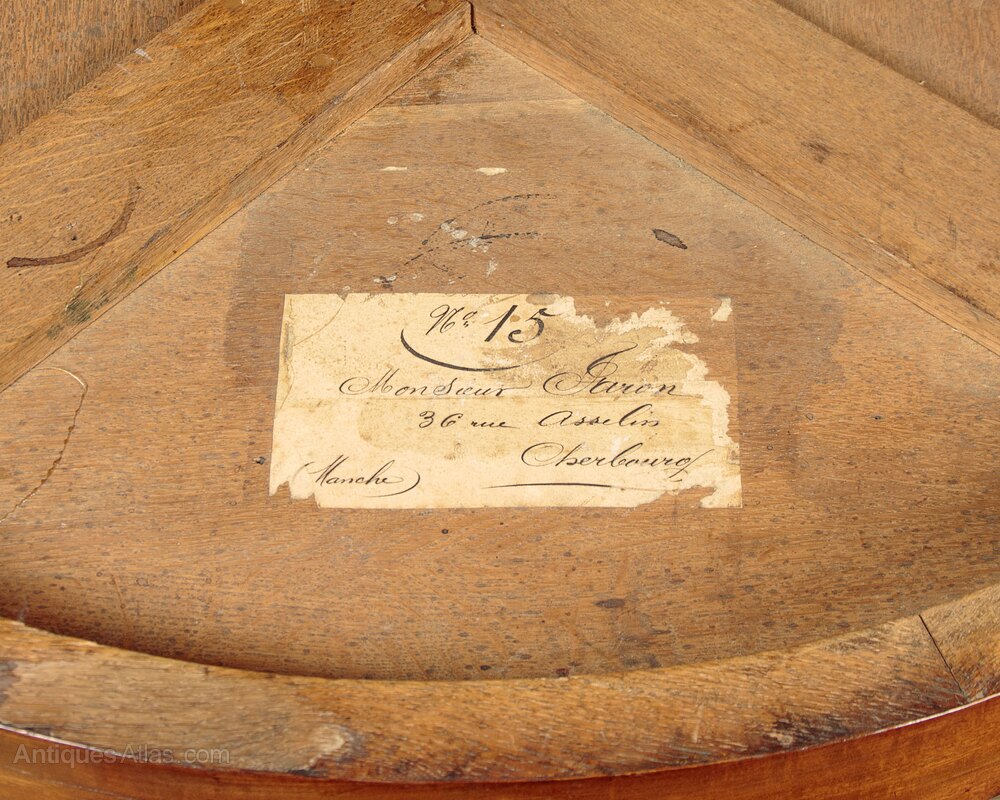 No. 15
Monsieur Favron
36 rue Asselin
Cherbourg
(Manche)
AntiquesAtlas.com